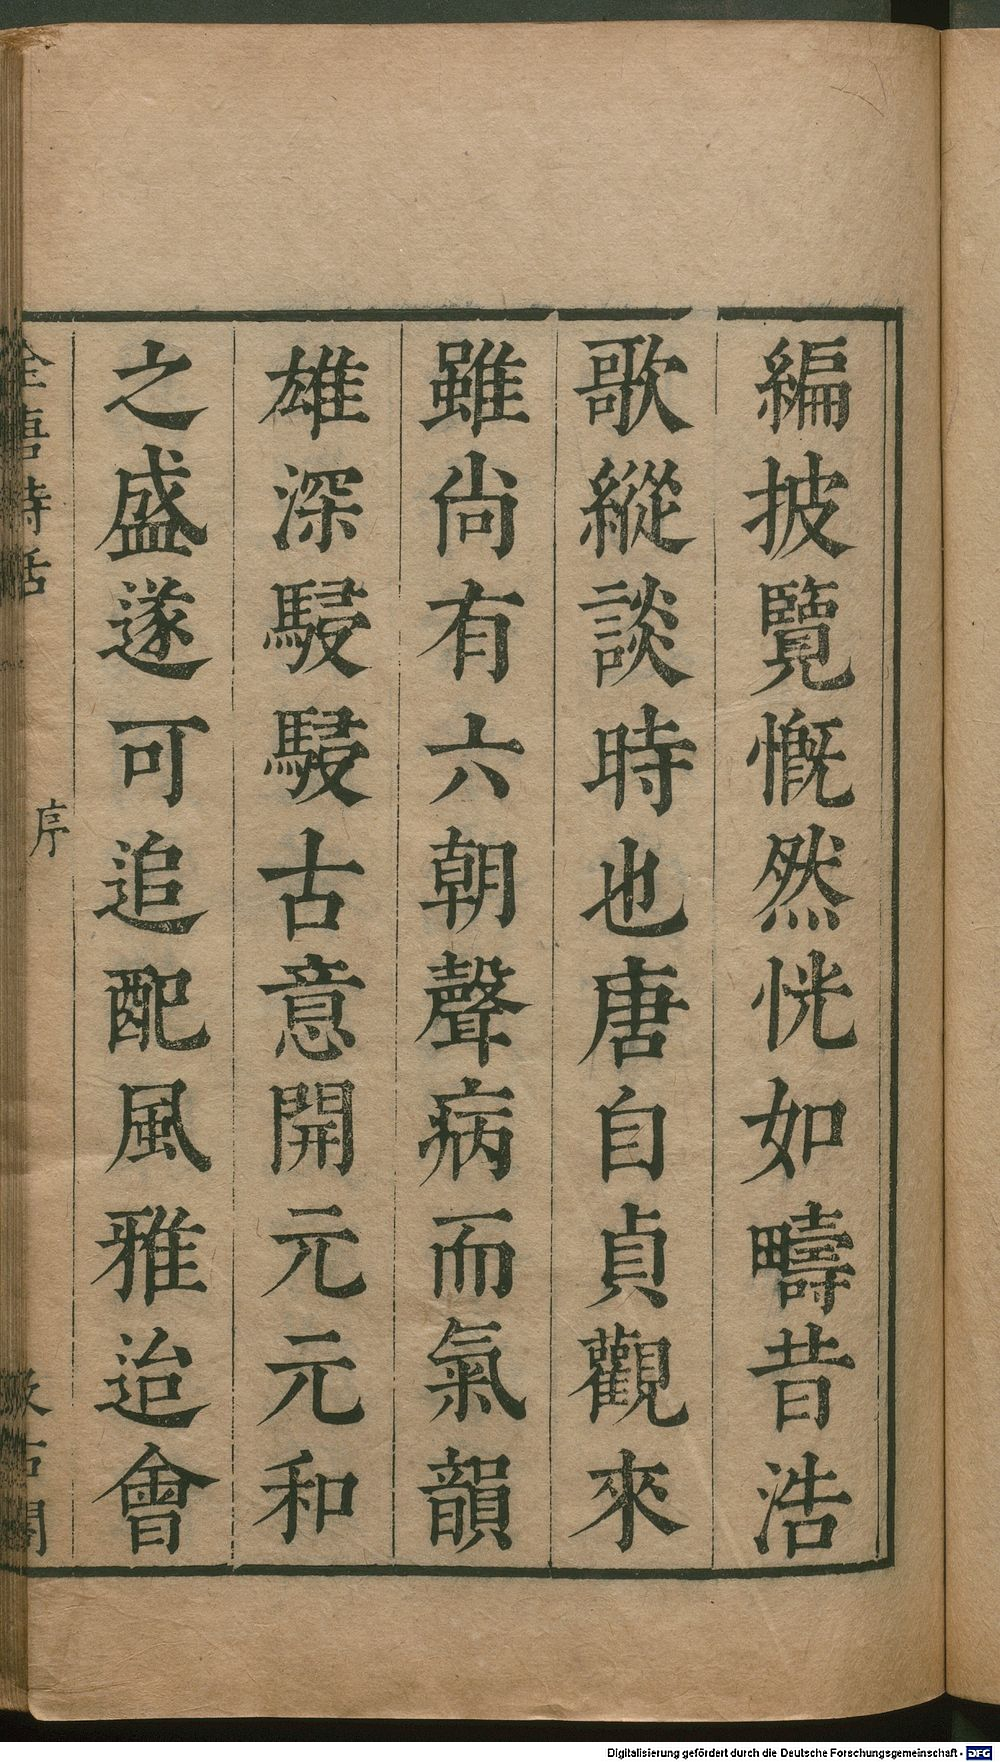 編披覽慨然恍如疇昔浩
歌縱談時也唐自貞觀來
雖尙有六朝聲病而氣韻
雄深駸駸古意開元元和
之盛遂可追配風雅迨會
全唐詩話
序
汲古閣
Digitalisierung gefördert durch die Deutsche Forschungsgemeinschaft - DFG